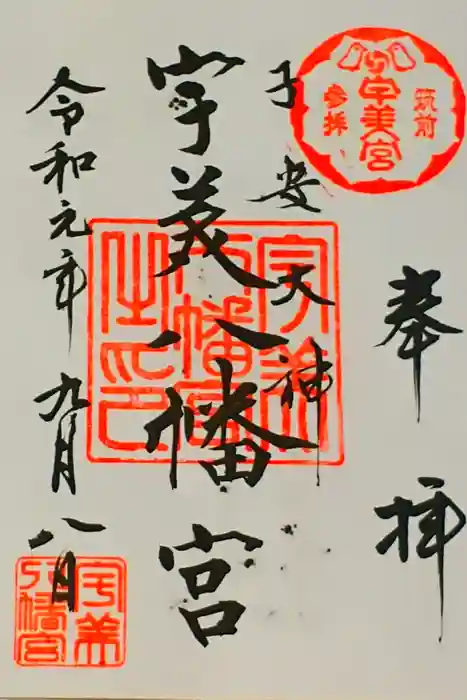 奉拝
筑前
宇美宮
参拝
子安大神
宇美八幡宮
宇美八幡宮之印
令和元年九月八日
宇美八幡宮